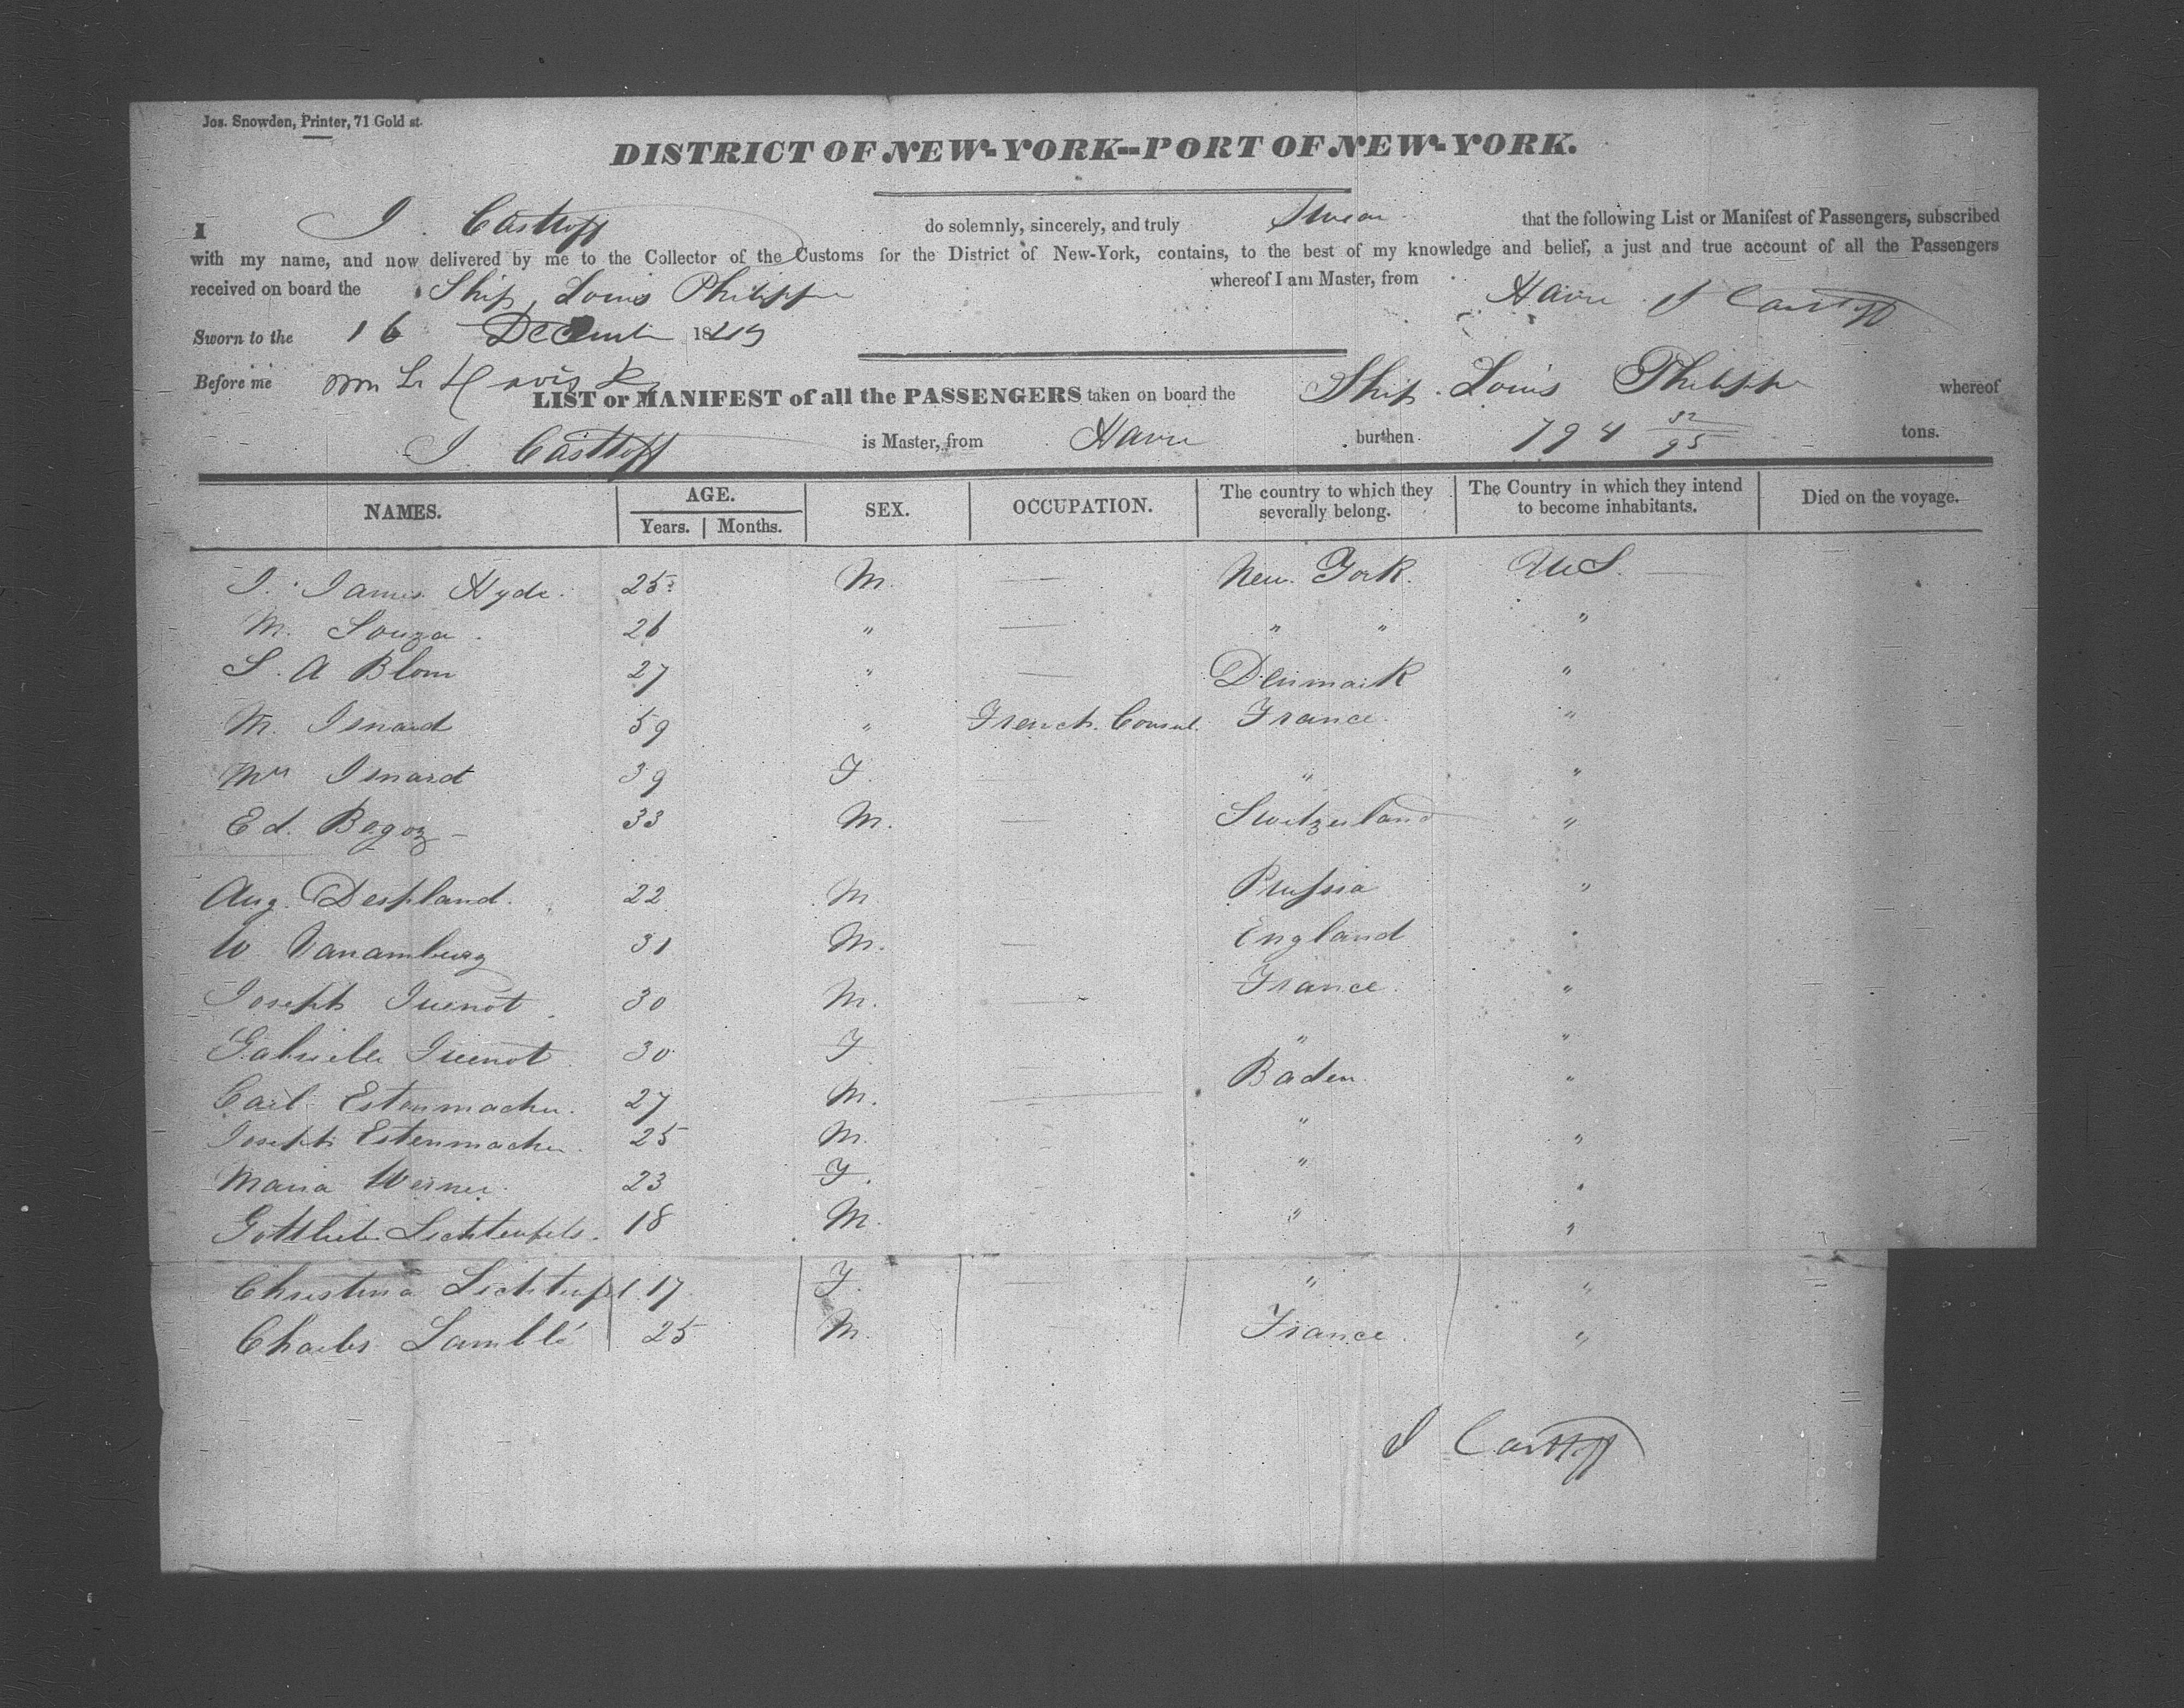 Jos. Snowden, Printer, 71 Gold st.
DISTRICT OF NEW-YORK--PORT OF NEW-YORK.
I J. Castoff do solemnly, sincerely, and truly Swear that the following List or Manifest of Passengers, subscribed
with my name, and now delivered by me to the Collector of the Customs for the District of New-York, contains, to the best of my knowledge and belief, a just and true account of all the Passengers
received on board the Ship, Louis Philippe whereof I am Master, from Havre J Castoff
Sworn to the 16 December 1849
Before me
LIST or MANIFEST of all the PASSENGERS taken on board the Ship Louis Philippe whereof
J Castoff is Master, from Havre burthen 794 52/95 tons.
NAMES. AGE. SEX. OCCUPATION. The country to which they severally belong. The Country in which they intend to become inhabitants. Died on the voyage.
Years. Months.
J. James Hyde. 25 M. — New York. U S.
M. Souza. 26 " — " " "
S. A Blom 27 " — Denmark "
M. Isnard 59 " French Consul. France. "
Mrs Isnard 39 F. " "
Ed. Begoz 33 M. — Switzerland "
Aug. Despland. 22 M Prussia "
W Vanamburg 31 M. — England "
Joseph Juenot. 30 M. — France. "
Gabrielle Juenot. 30 F " "
Carl Estenmacher. 27 M. — Baden. "
Joseph Estenmacher. 25 M. " "
Maria Werner. 23 F. " "
Gottlieb Lichtenfels. 18 M. " "
Christina Lichtenfel 17 F. " "
Charles Lamblé 25 M. France. "
J Castoff